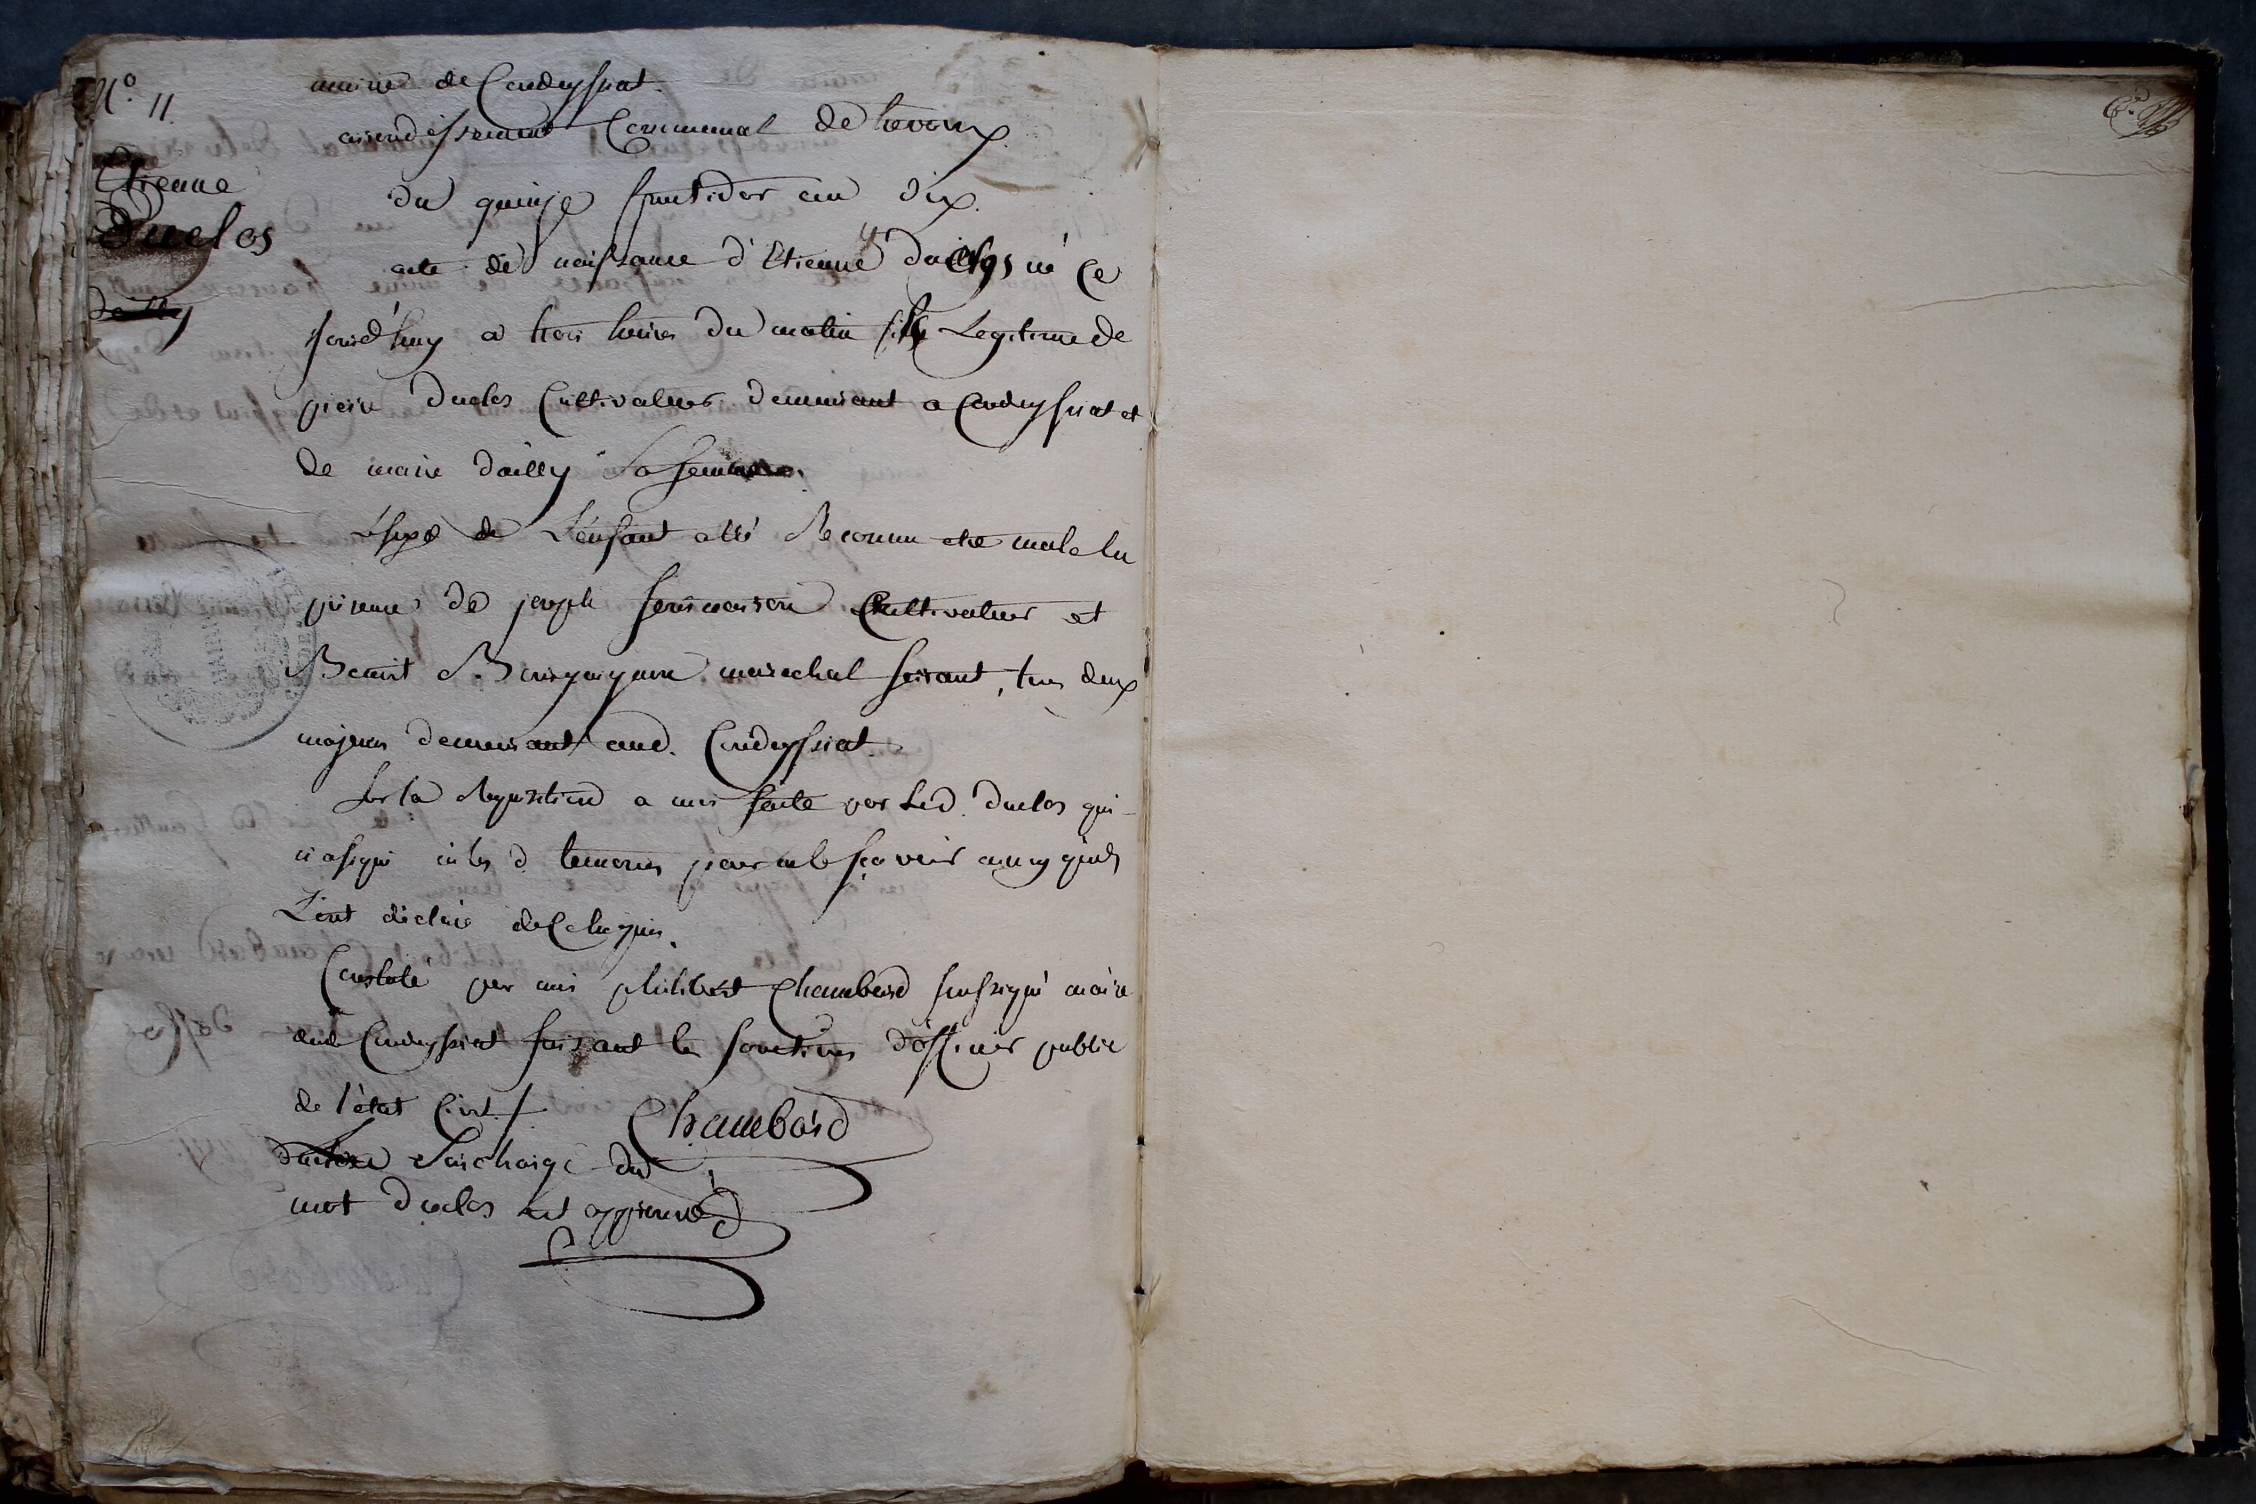 N.° 11.
Etienne
Duclos
Dailly
mairie de Condeyssiat.
arrondissement Communal de trevoux.
du quinze fructidor an dix.
acte de naissance d'Etienne duclos né ce
jourd'huy a trois heures du matin fils Legitime de
pierre duclos Cultivateur demeurant a Condeyssiat et
de marie dailly sa femme.
Lesexe de L'enfant a été Reconnu etre male en
présence de joseph Cultivateur et
Benoit marechal ferrant, tous deux
majeurs demeurant aud. Condeyssiat.
Sur la Requisition a moi faite par Led. duclos qui
n'a signé ni les d. temoins pour ne le sçavoir ainsy qu'ils
L'ont déclaré de Ce Requis.
Constaté par moi philibert Chambard soussigné maire
dud Condeyssiat faisant les fonctions d'officier public
de l'état Civil. /. Chambard
Surchargé du
mot duclos est approuvé